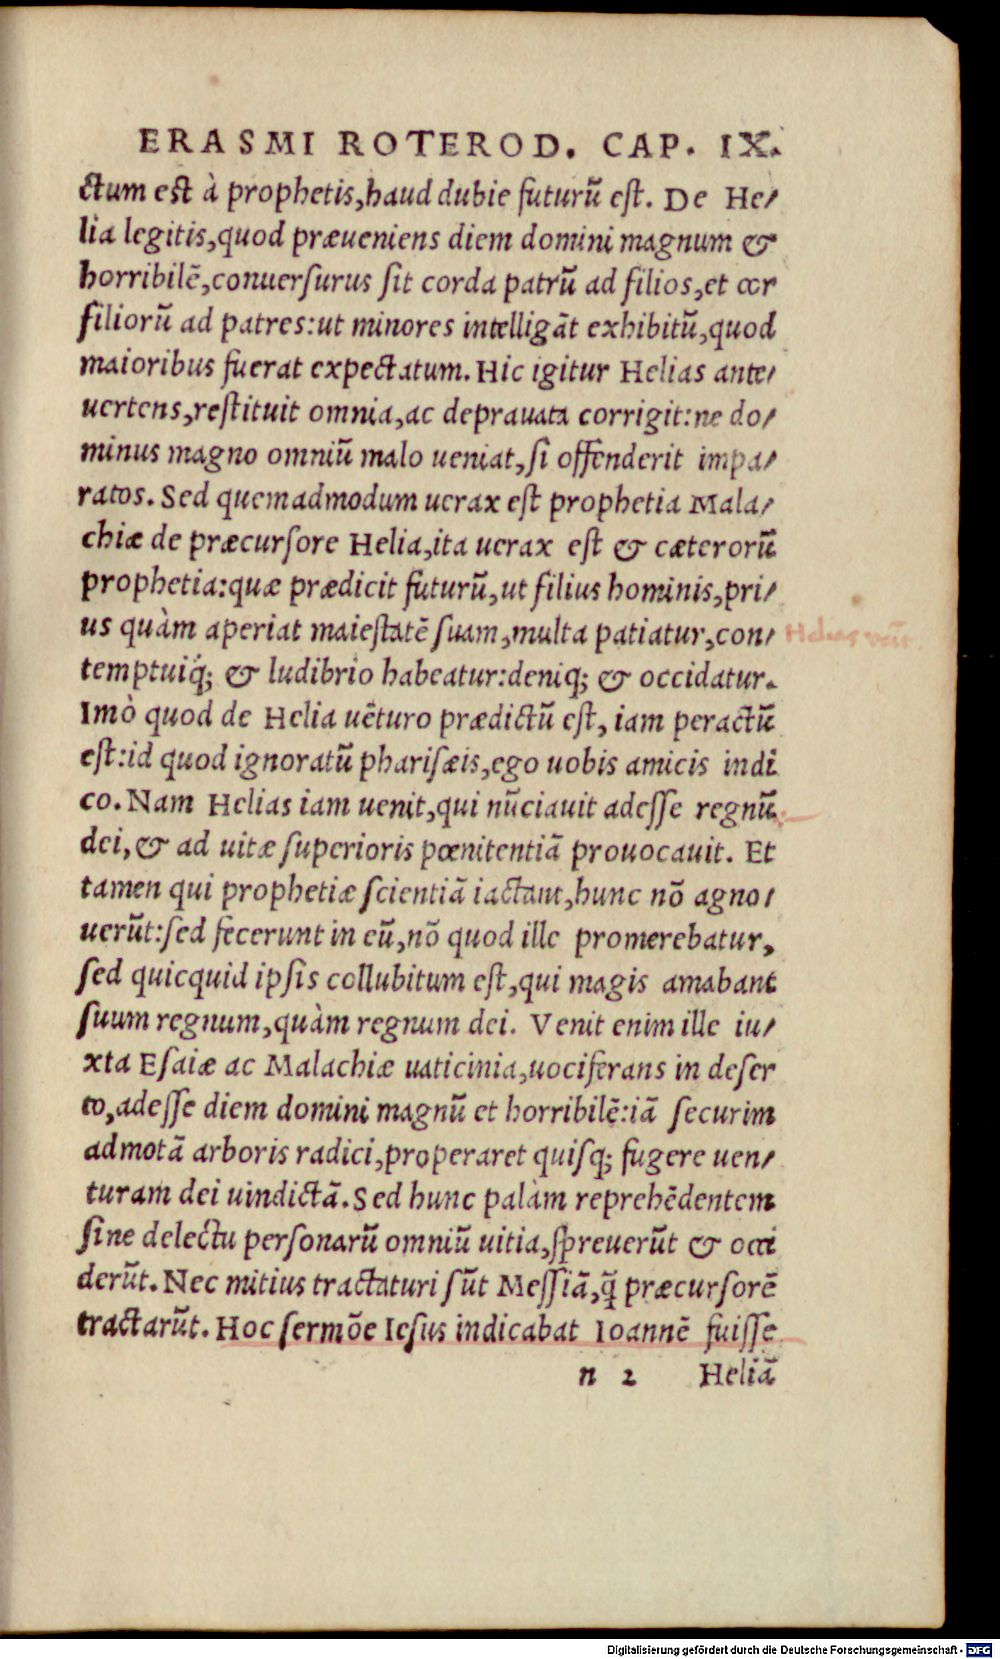 ERASMI ROTEROD. CAP. IX.
ctum est à prophetis,haud dubie futurũ est. De He/
lia legitis,quod præueniens diem domini magnum &
horribilẽ,conuersurus sit corda patrũ ad filios,et cor
filiorũ ad patres:ut minores intelligãt exhibitũ,quod
maioribus fuerat expectatum. Hic igitur Helias ante/
uertens,restituit omnia,ac deprauata corrigit:ne do/
minus magno omniũ malo ueniat,si offenderit impa/
ratos. Sed quemadmodum uerax est prophetia Mala/
chiæ de præcursore Helia,ita uerax est & cæterorũ
prophetia:quæ prædicit futurũ,ut filius hominis,pri/
us quàm aperiat maiestatẽ suam,multa patiatur,con/
temptuiq́; & ludibrio habeatur:deniq; & occidatur.
Imò quod de Helia uẽturo prædictũ est, iam peractũ
est:id quod ignoratũ pharisæis,ego uobis amicis indi
co. Nam Helias iam uenit,qui nũciauit adesse regnũ
dei, & ad uitæ superioris pœnitentiã prouocauit. Et
tamen qui prophetiæ scientiã iactant,hunc nõ agno/
uerũt:sed fecerunt in eũ,nõ quod ille promerebatur,
sed quicquid ipsis collubitum est,qui magis amabant
suum regnum,quàm regnum dei. Venit enim ille iu/
xta Esaiæ ac Malachiæ uaticinia,uociferans in deser
to,adesse diem domini magnũ et horribilẽ:iã securim
admotã arboris radici,properaret quisq; fugere uen/
turam dei uindictã. Sed hunc palàm reprehẽdentem
sine delectu personarũ omniũ uitia,spreuerũt & occi
derũt. Nec mitius tractaturi sũt Messiã,q̃ præcursorẽ
tractarũt. Hoc sermõe Iesus indicabat Ioannẽ fuisse
n 2 Heliã
Helias
Digitalisierung gefördert durch die Deutsche Forschungsgemeinschaft - DFG